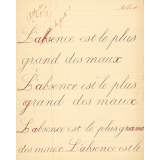 L'absence est le plus
grand des maux
L'absence est le plus
grand des maux
L'absence est le plus grand
des maux L'absence est le